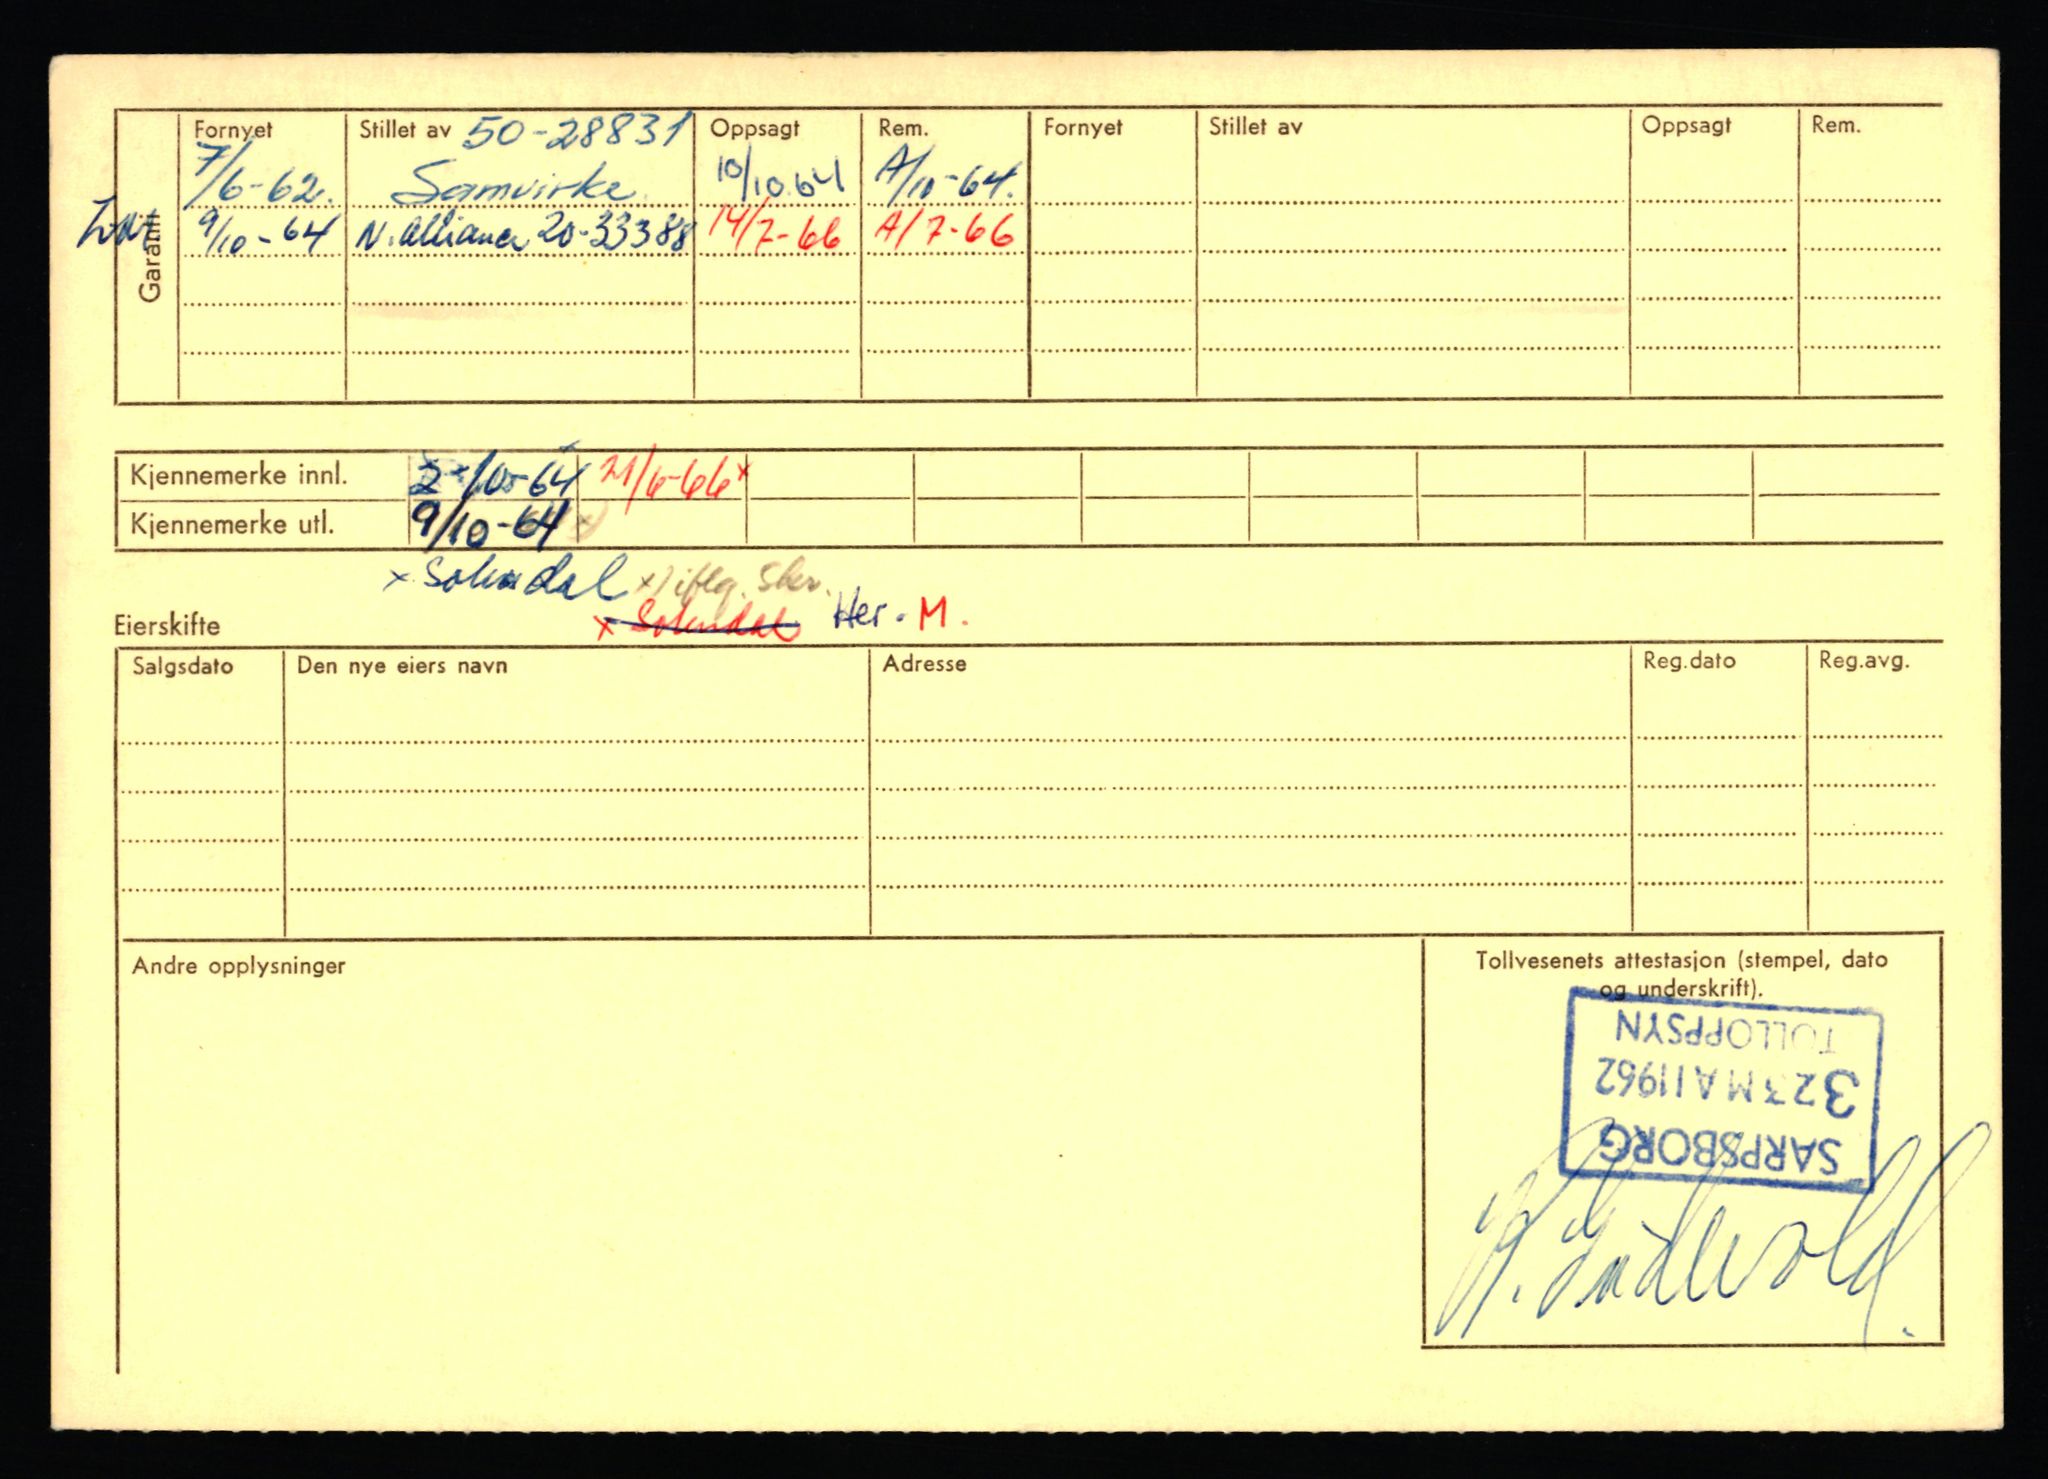 Garanti
Fornyet Stillet av 50-28831 Oppsagt Rem. Fornyet Stillet av Oppsagt Rem.
7/6-62. Samvirke 10/10.64 A/10-64.
9/10-64 N. Alliance 20-33388 14/7-66 A/7-66
Kjennemerke innl. 2/10-64 21/6-66 x
Kjennemerke utl. 9/10-64 x)
x Sokndal x) iflg.
x Sokndal Her. M.
Eierskifte
Salgsdato Den nye eiers navn Adresse Reg.dato Reg.avg.
Andre opplysninger
Tollvesenets attestasjon (stempel, dato
og underskrift).
SARPSBORG
3 23 MAI 1962
TOLLOPPSYN